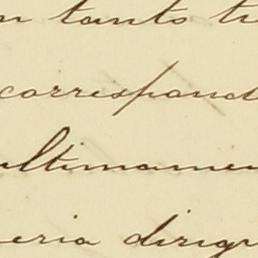 n tanto tr
correspond
ultimamen
eria dirigi